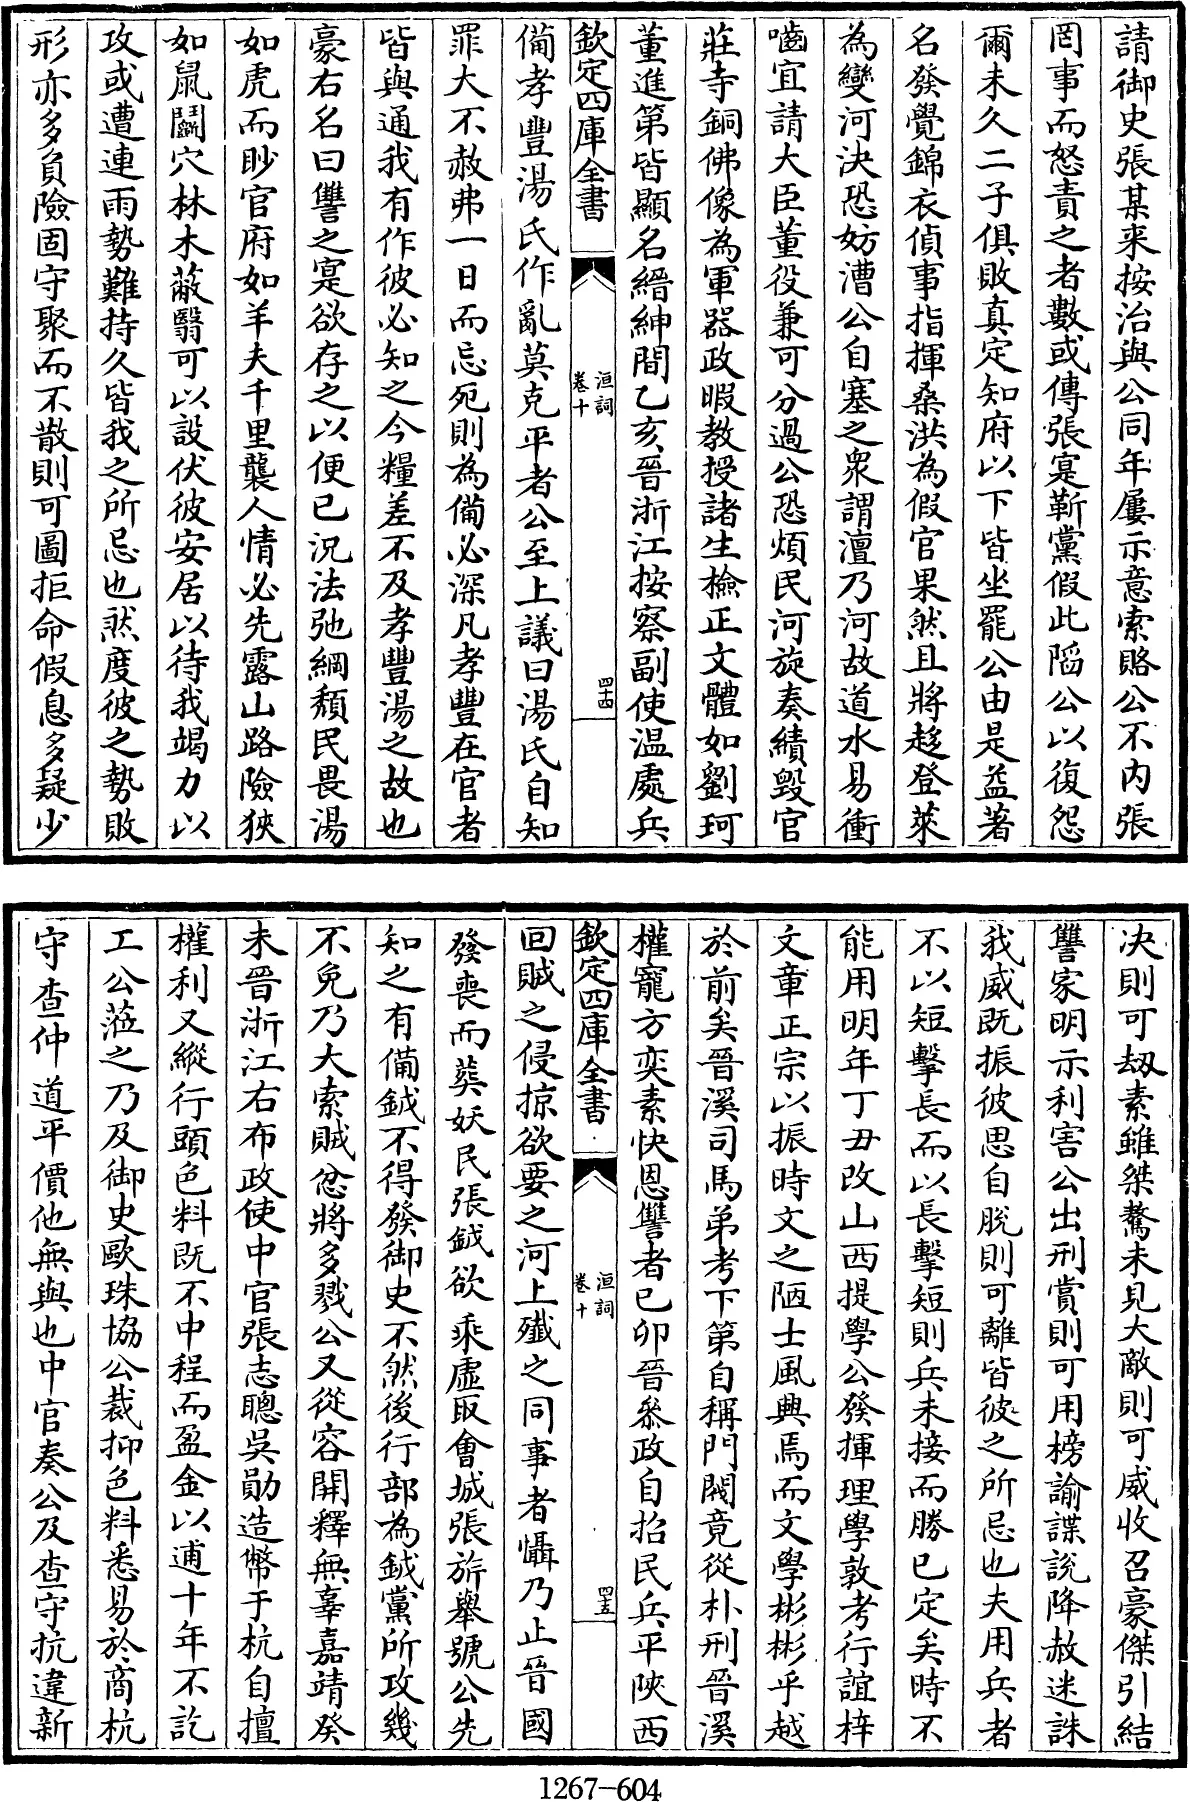 請御史張某來按治與公同年屢示意索賂公不内張
罔事而怒責之者數或傳張寔靳黨假此陷公以復怨
爾未久二子俱敗真定知府以下皆坐罷公由是益著
名發覺錦衣偵事指揮桑洪為假官果然且將趍登萊
為變河決恐妨漕公自塞之衆謂澶乃河故道水易衝
嚙宜請大臣董役兼可分過公恐煩民河旋奏績毀官
莊寺銅佛像為軍器政暇教授諸生檢正文體如劉珂
董進第皆顯名縉紳間乙亥晉浙江按察副使温處兵
欽定四庫全書
洹詞
卷十
四十四
備孝豐湯氏作亂莫克平者公至上議曰湯氏自知
罪大不赦弗一日而忘死則為備必深凡孝豐在官者
皆與通我有作彼必知之今糧差不及孝豐湯之故也
豪右名曰讐之寔欲存之以便已況法弛綱頽民畏湯
如虎而眇官府如羊夫千里襲人情必先露山路險狹
如鼠鬭穴林木蔽翳可以設伏彼安居以待我竭力以
攻或遭連雨勢難持久皆我之所忌也然度彼之勢敗
形亦多負險固守聚而不散則可圖拒命假息多疑少
決則可刼素雖桀驁未見大敵則可威收召豪傑引結
讐家明示利害公出刑賞則可用榜諭諜說降赦迷誅
我威既振彼思自脫則可離皆彼之所忌也夫用兵者
不以短擊長而以長擊短則兵未接而勝已定矣時不
能用明年丁丑改山西提學公發揮理學敦考行誼梓
文章正宗以振時文之陋士風興焉而文學彬彬乎越
於前矣晉溪司馬弟考下第自稱門閥竟從朴刑晉溪
權寵方奕素快恩讐者已卯晉叅政自招民兵平陜西
欽定四庫全書
洹詞
卷十
四十五
回賊之侵掠欲要之河上殲之同事者懾乃止晉國
發喪而葬妖民張鉞欲乘虛取會城張旂舉號公先
知之有備鉞不得發御史不然後行部為鉞黨所攻幾
不免乃大索賊忿將多戮公又從容開釋無辜嘉靖癸
未晉浙江右布政使中官張志聰吳勛造幣于杭自擅
權利又縱行頭色料既不中程而盈金以逋十年不訖
工公蒞之乃及御史歐珠協公裁抑色料悉易於商杭
守查仲道平價他無與也中官奏公及查守抗違新
1267-604